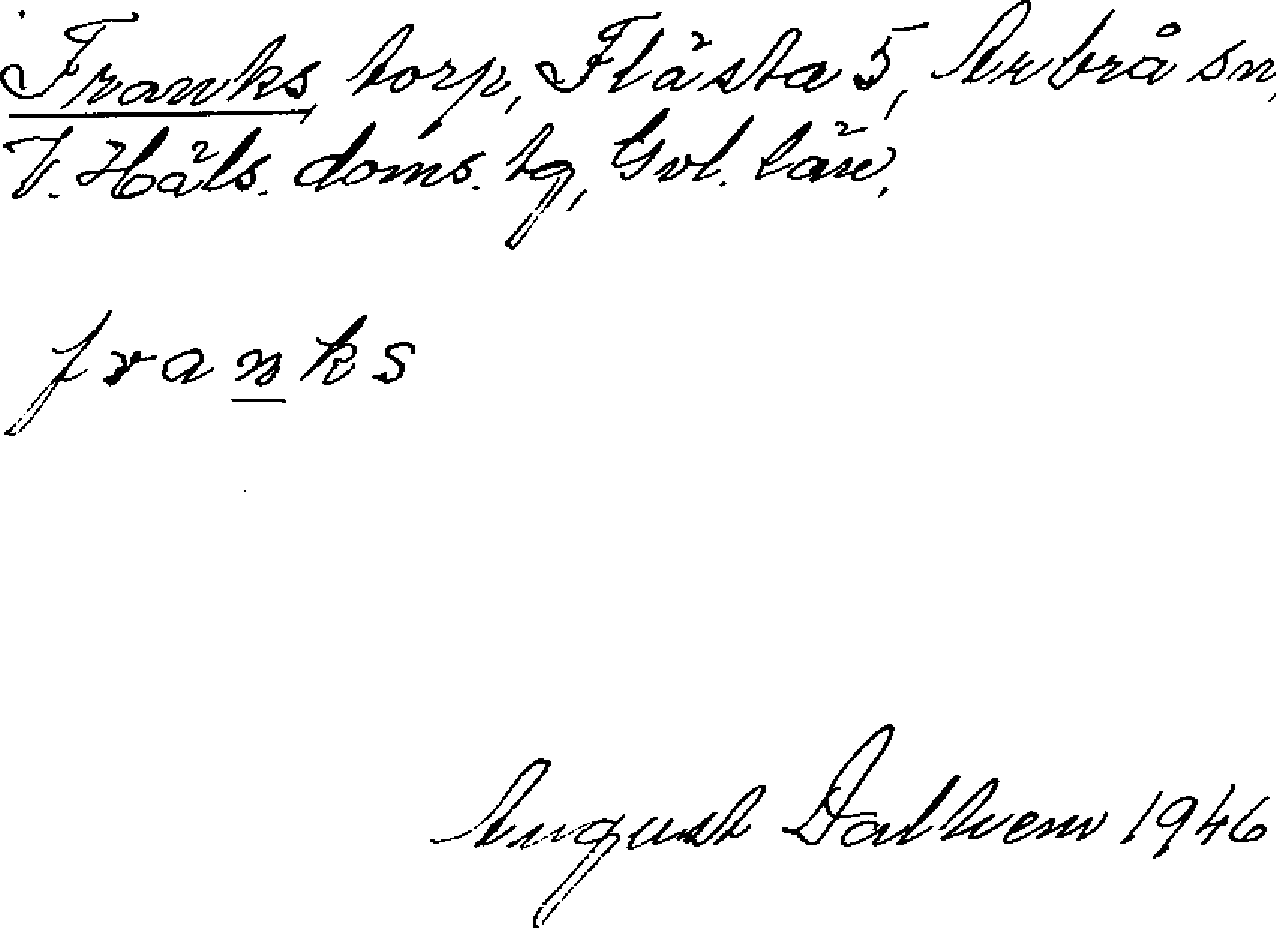 Franks, torp, Flästa 5, Arbrå sn,
V. Häls. doms. tg, Gvl. län.
franks
August Dalhem 1946